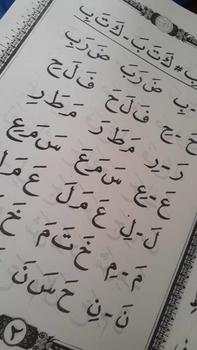 بِ # كَ تَ بَ - كَ تَ بِ
بِ ضَ رَ بَ ضَ رَ بِ
حَ - حِ فَ لَ حَ فَ لَ حِ
رَ - رِ مَ طَ رَ مَ طَ رِ
عَ - عِ سَ مَ عَ سَ مَ عِ
لَ - لِ عَ مَ لَ عَ مَ
مَ - مِ خَ تَ مَ خَ
نَ - نِ حَ سَ نَ
٢